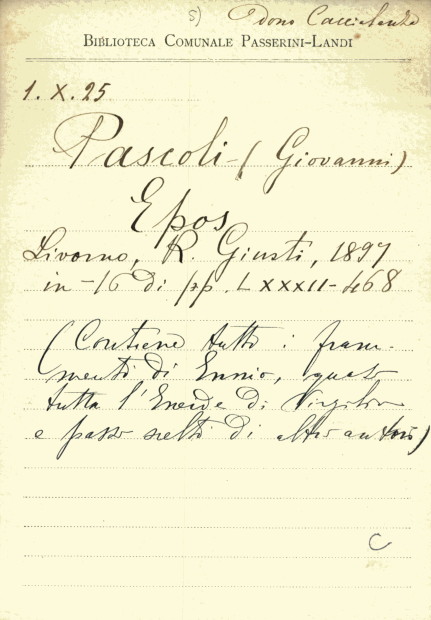 5) dono Caccialanza
BIBLIOTECA COMUNALE PASSERINI-LANDI
1. X. 25
Pascoli - (Giovanni)
Epos
Livorno, R. Giusti, 1897
in-16 di pp. LXXXII-468
(Contiene tutto i fram-
menti di Ennio, quasi
tutta l'Eneide di Virgilio
e passi scelti di altri autori)
C